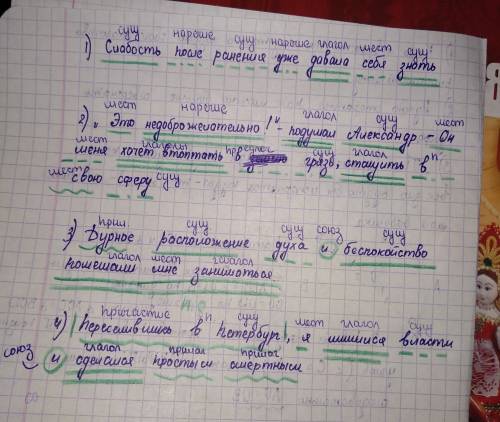 сущ наречие сущ наречие глагол мест сущ
1) Слабость после ранения уже давала себя знать
мест наречие глагол сущ мест
2) „Это недоброжелательно!" - подумал Александр - Он
мест глаголы предлог сущ глагол п.
меня хочет втоптать в грязь, стащить в
мест сущ
свою сферу
прил сущ сущ союз сущ
3) Дурное расположение духа и беспокойство
глагол мест глагол
помешали мне заниматься
причастие п сущ мест глагол сущ
4) Переселившись в Петербург, я лишился власти
союз глагол прилаг прилаг
и сделался простым смертным